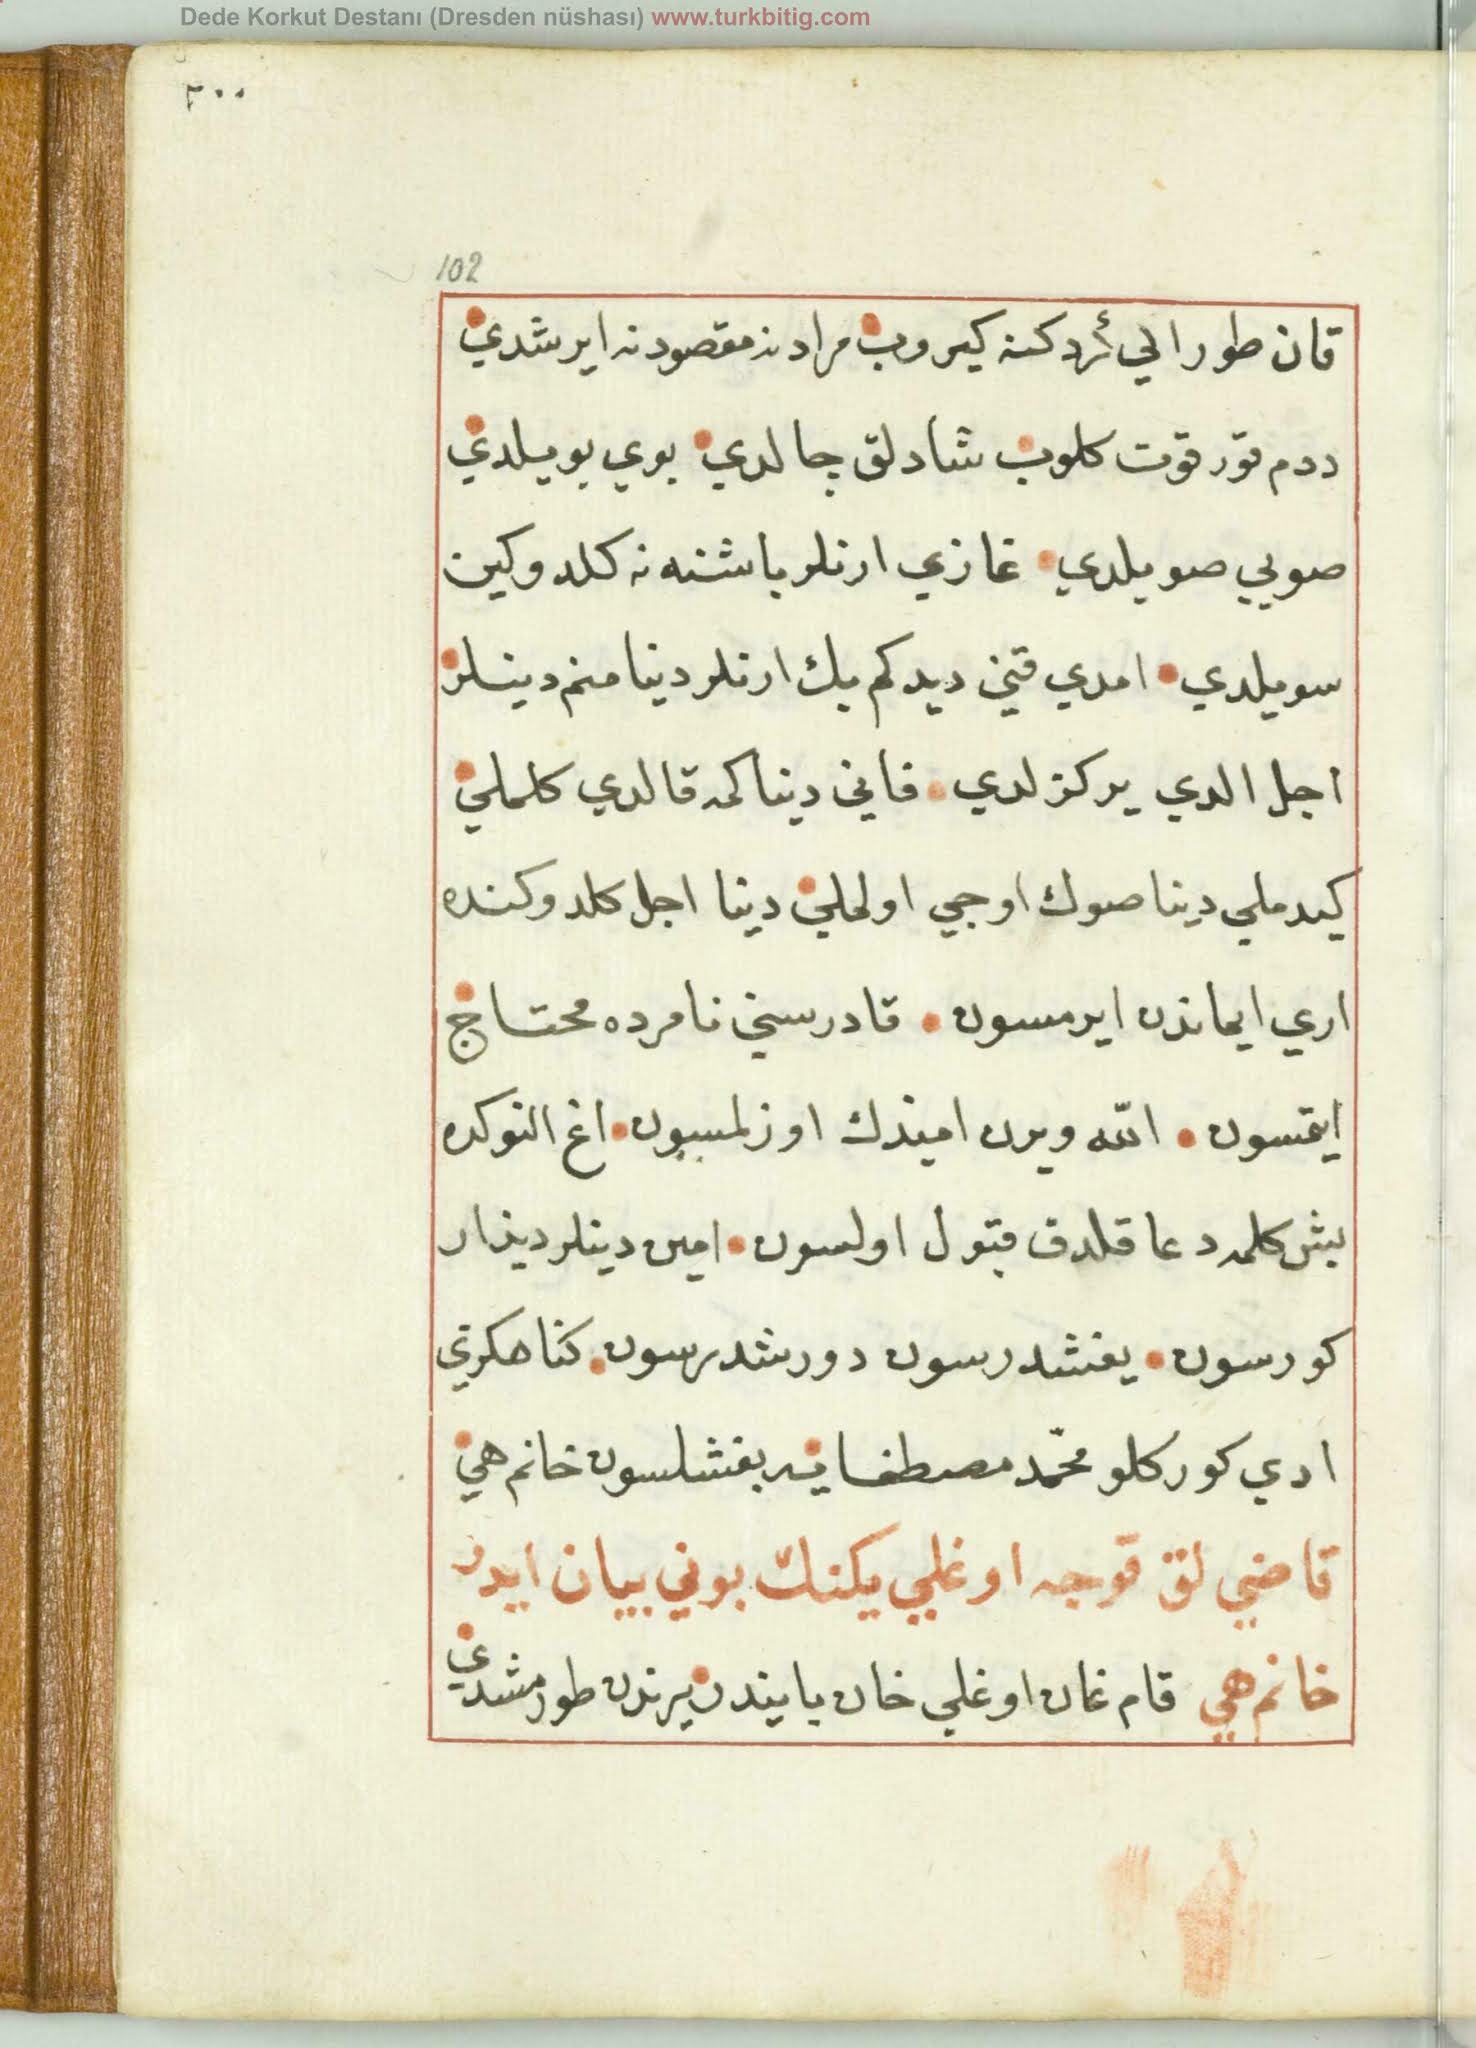 Dede Korkut Destanı (Dresden nüshası) www.turkbitig.com
٢٠٠
102
قان طورالي گردكنه كيروب مرادنه مقصودنه ايرشدي
ددم قورقوت كلوب شادلق چالدي بوي بويلدي
صويي صويلدي غازي ارنلر باشنه نه كلدوكين
سويلدي امدي قني ديدكم بك ارنلر دنيا منم دينلر
اجل الدي ير كزلدي فاني دنيا كمه قالدي كلملي
كيدملي دنيا صوك اوجي اولملي دنيا اجل كلدوكنده
اري ايماندن ايرمسون قادر سني نامرده محتاج
ايتمسون الله ويرن اميدك اوزلمسون اغ النوكده
بش كلمه دعا قلدق قبول اولسون امين دينلر ديدار
كورسون يغشدرسون دورشدرسون كناهكزي
ادي كوركلو محمّد مصطفايه بغشلسون خانم هي
قاضي لق قوجه اوغلي يكنك بوني بيان ايدر
خانم هي قام غان اوغلي خان بايندر يرندن طورمشدي